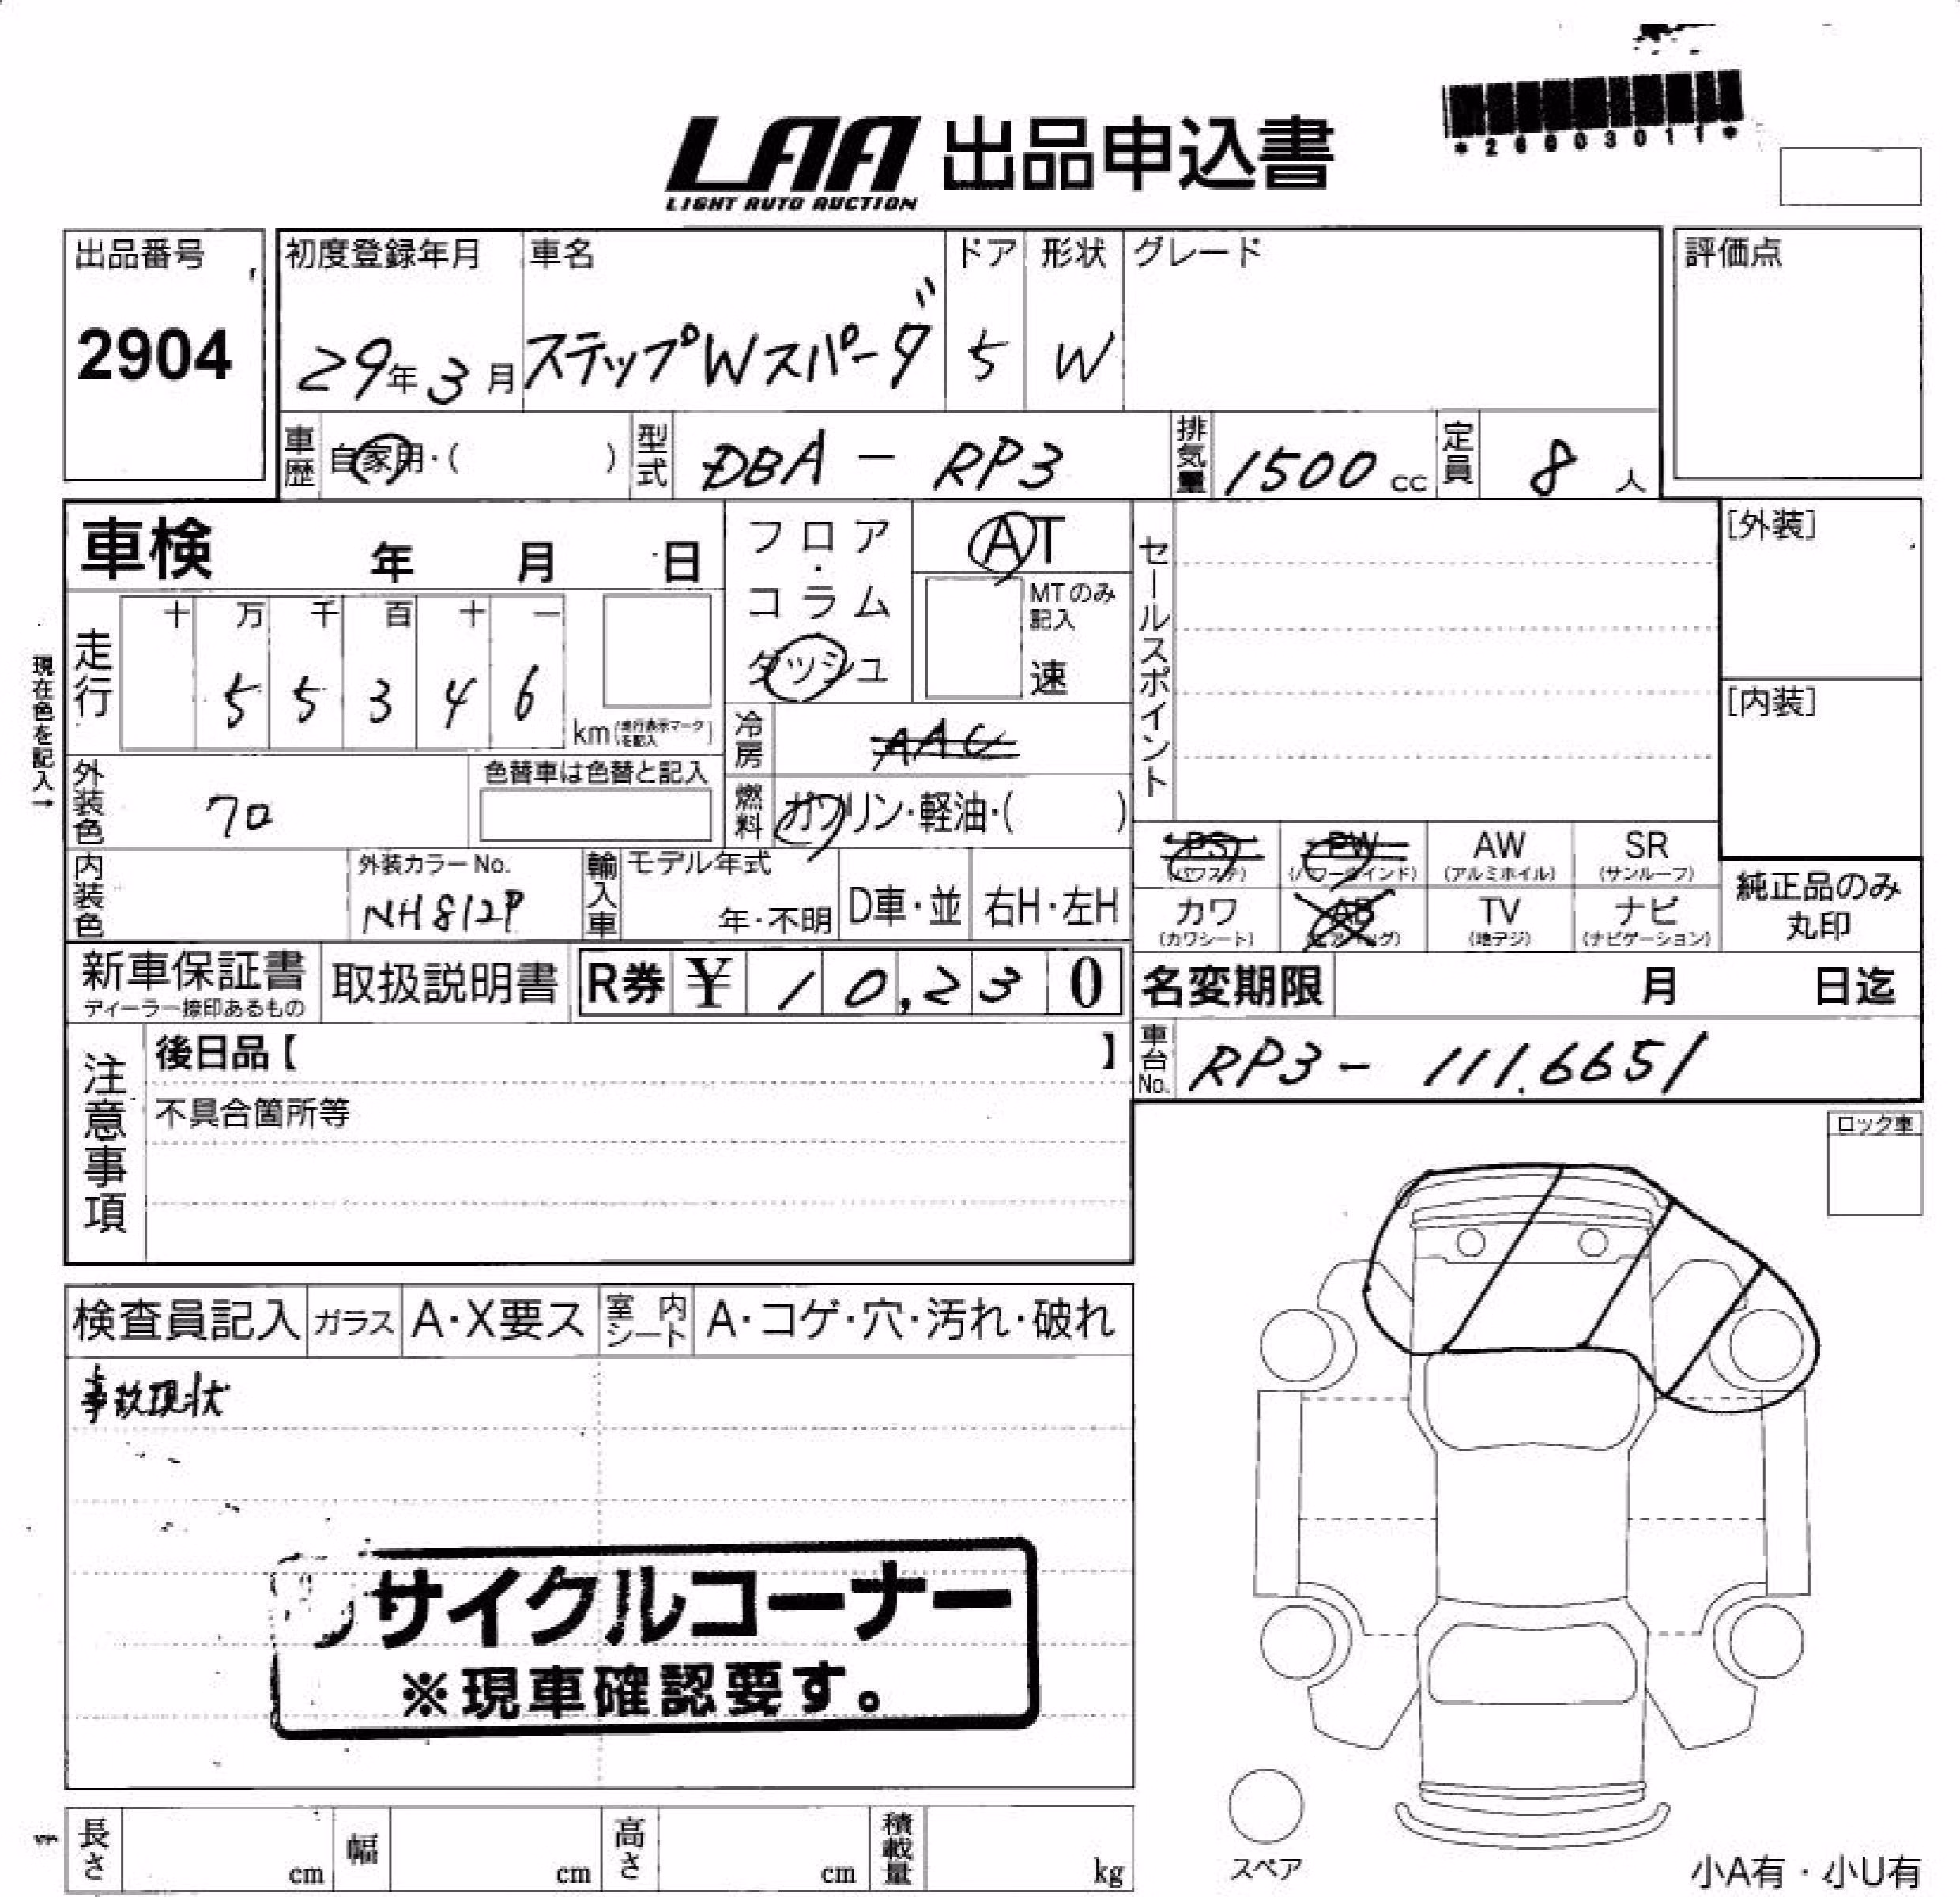 *26903011*
LAA 出品申込書
LIGHT AUTO AUCTION
出品番号
2904
初度登録年月
29年3月
車名
ステップWスパーダ
ドア
5
形状
W
グレード
評価点
車歴
自家用・( )
型式
DBA - RP3
排気量
1500 cc
定員
8 人
車検 年 月 日
フロア・コラム・ダッシュ
AT
MTのみ記入
速
セールスポイント
[外装]
[内装]
現在色を記入→
走行
十 万 千 百 十 一
5 5 3 4 6
km (走行表示マークを記入)
冷房
AAC
外装色
クロ
色替車は色替と記入
燃料
ガソリン・軽油・( )
PS (パワステ)
PW (パワーウインド)
AW (アルミホイル)
SR (サンルーフ)
カワ (カワシート)
AB (エアバッグ)
TV (地デジ)
ナビ (ナビゲーション)
純正品のみ丸印
内装色
外装カラーNo.
NH812P
輸入車
モデル年式
年・不明
D車・並
右H・左H
新車保証書
ディーラー捺印あるもの
取扱説明書
R券 ¥ 10,230
名変期限 月 日迄
車台No.
RP3- 1116651
注意事項
後日品【 】
不具合箇所等
ロック車
検査員記入
ガラス
A・X要ス
室内シート
A・コゲ・穴・汚れ・破れ
事故現状
リサイクルコーナー
※現車確認要す。
長さ cm
幅 cm
高さ cm
積載量 kg
スペア
小A有・小U有